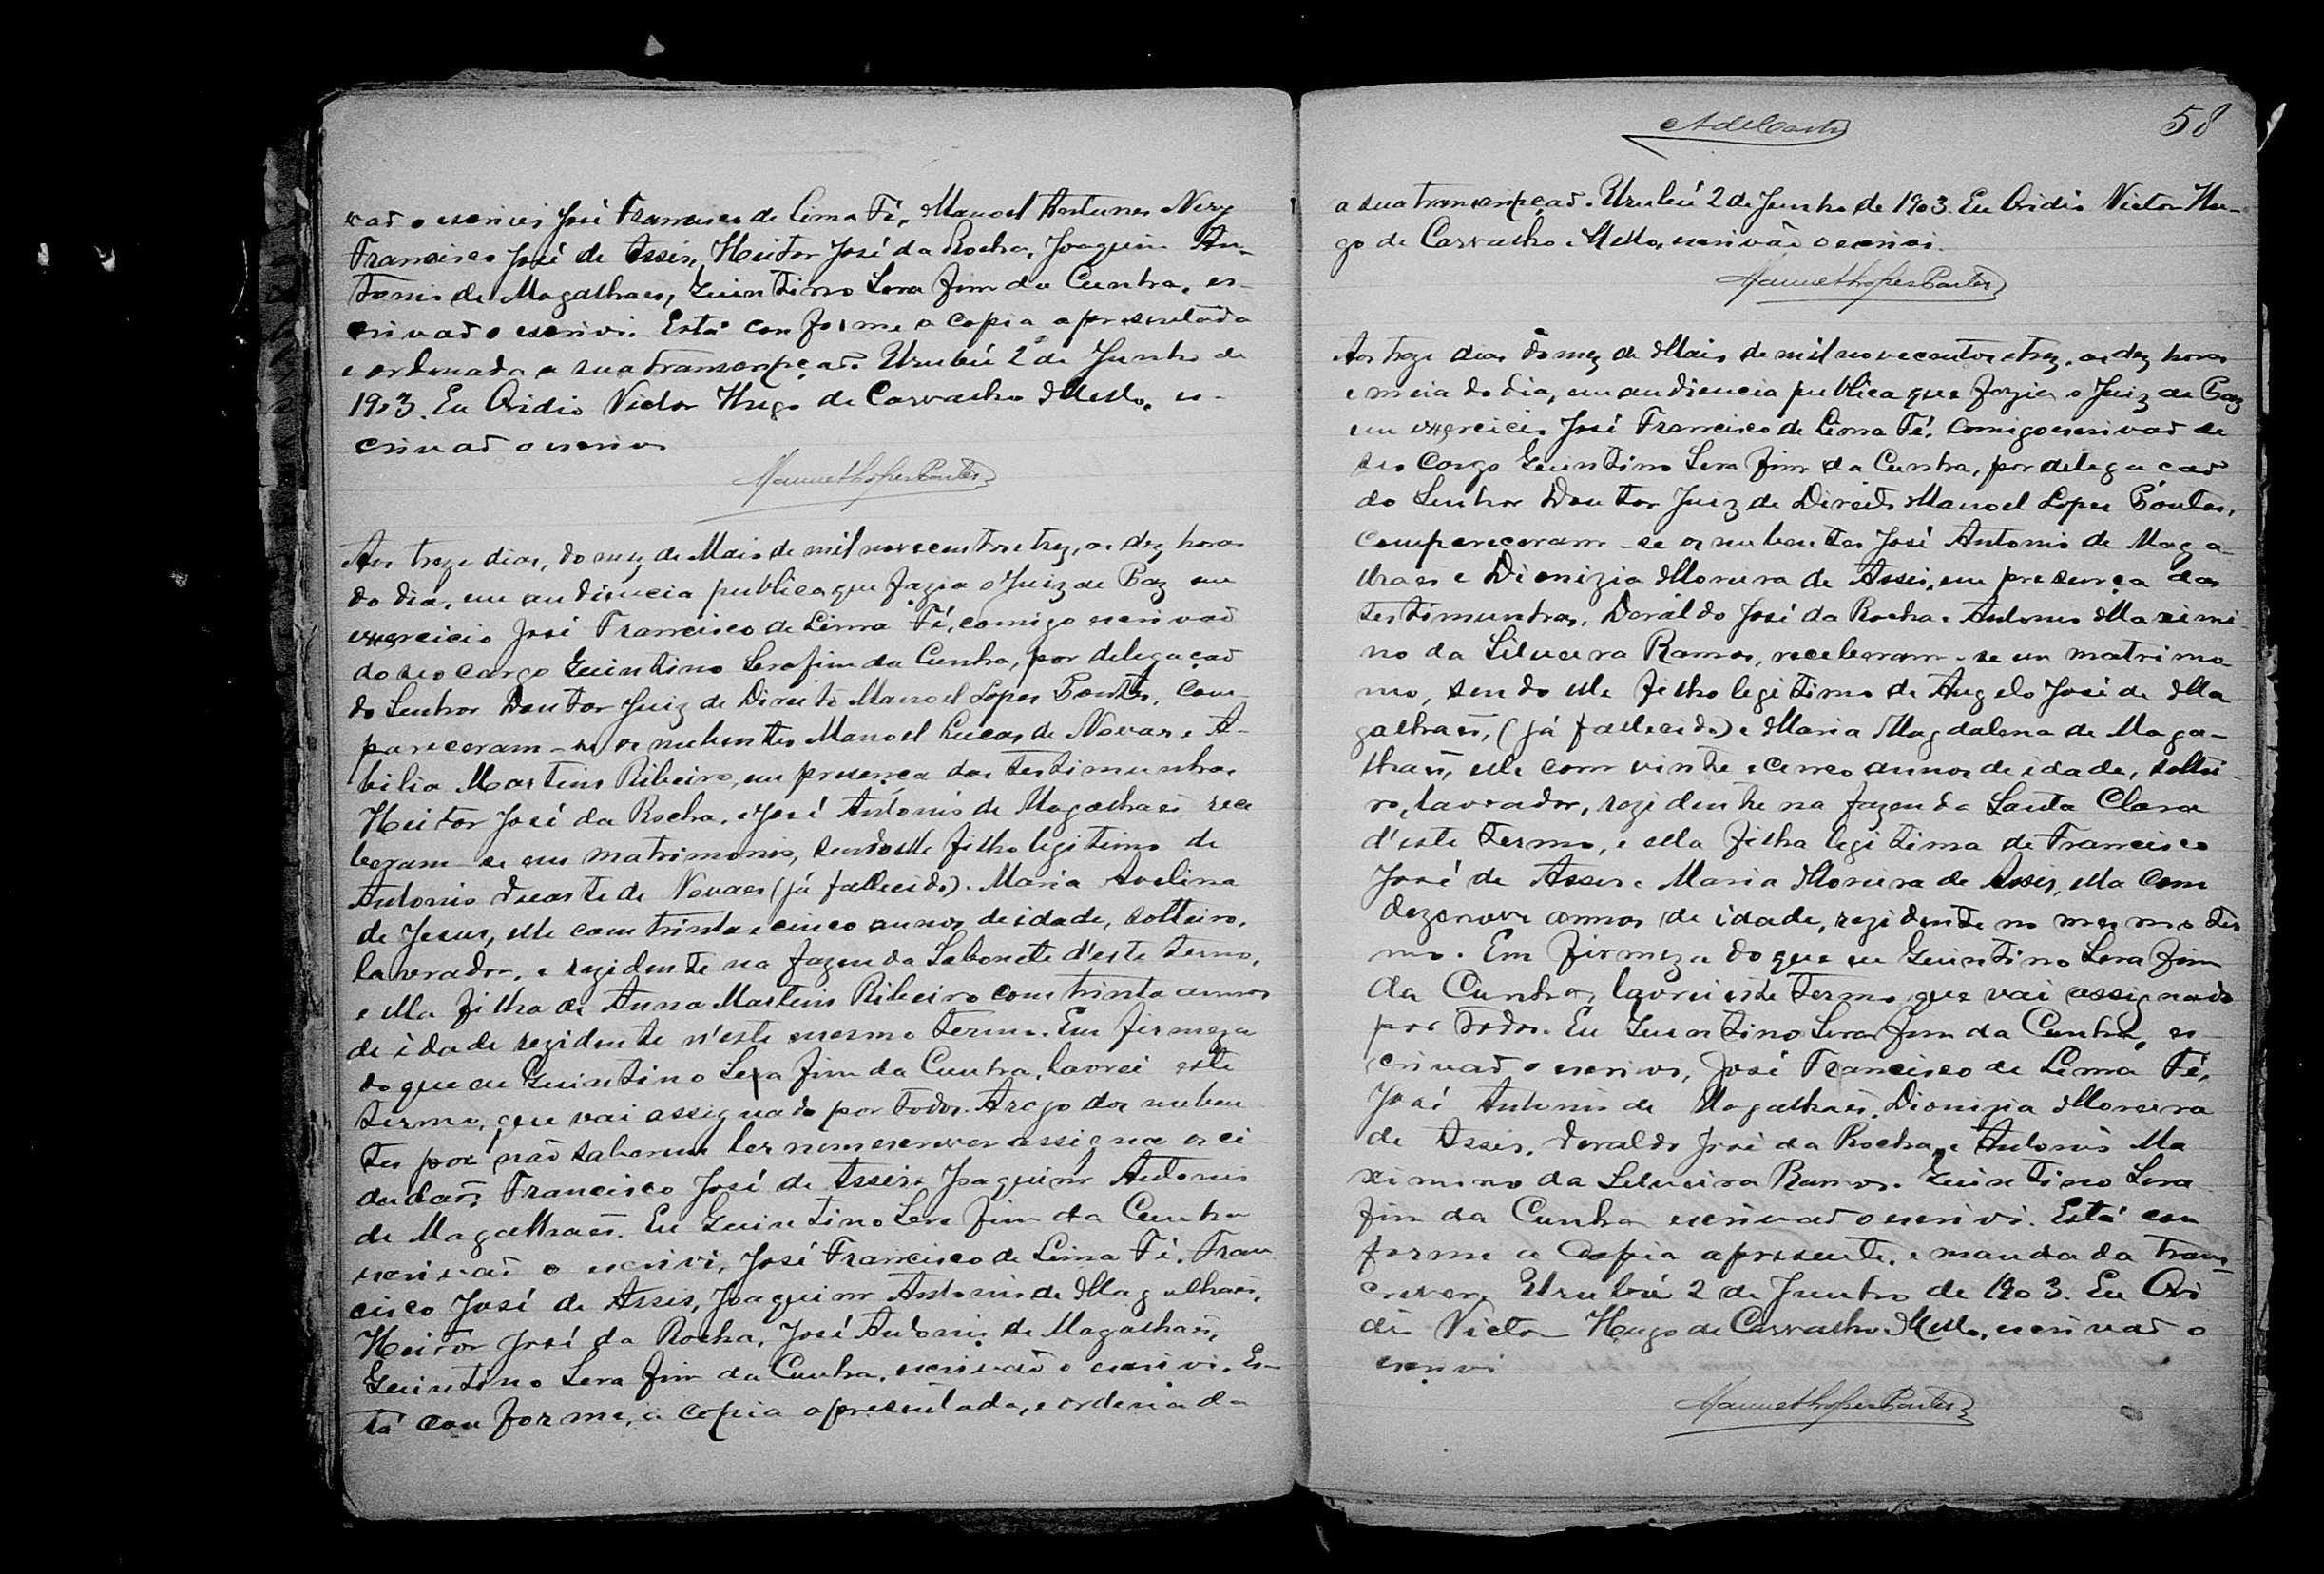 vaõ o escrivi José Francisco de Lima Fé, Manoel Antunes Nery
Francisco José de Assis, Heitor José da Rocha, Joaquim An-
tonio de Magalhaes, Guintino Sera fim da Cunha, es-
crivaõ o escrivi. Está con forme a copia apresentada
e ordenada a sua transcripçaõ. Urubú 2 de Junho de
1903. Eu Ovidio Victor Hugo de Carvalho Mello, es-
crivaõ o escrivi
Manuel Lopes Pontes
Aos treze dias, do mez de Maio de mil novecentos e trez, as dez horas
do dia, em audiencia publica que fazia o Juiz de Paz em
exercicio José Francisco de Lima Fé, comigo escrivaõ
do seo cargo Guintino Serafim da Cunha, por delegaçaõ
do Senhor Doutor Juiz de Direito Manoel Lopes Pontes, com-
pareceram-se os nubentes Manoel Lucas de Novaes e A-
bilia Martins Ribeiro, em presença das testimunhas,
Heitor José da Rocha, e José Antonio de Magalhaes rece
beram-se em matrimonio, sendo elle filho legitimo de
Antonio Duarte de Novaes (já fallecido) e Maria Avelina
de Jesus, elle com trinta e cinco annos de idade, solteiro,
lavrador, e rezidente na fazenda Sabonete d'este termo,
e ella filha de Anna Martins Ribeiro com trinta annos
de idade rezidente n'este mesmo termo. Em firmeza
do que eu Guintino Sera fim da Cunha, lavrei este
termo, que vai assignado por todos. A rogo dos nuben
tes por não saberem ler nem escrever assigna os ci
dadaõs Francisco José de Assis e Joaquim Antonio
de Magalhaes. Eu Guintino Sera fim da Cunha
escrivaõ o escrivi, José Francisco de Lima Fé. Fran
cisco José de Assis, Joaquim Antonio de Magalhaes,
Heitor José da Rocha, José Antonio de Magalhaes,
Guintino Sera fim da Cunha, escrivaõ o escrivi. Es-
tá con forme, a copia apresentada, e ordenada
58
a sua transcripçaõ. Urubú 2 de Junho de 1903. Eu Ovidio Victor Hu-
go de Carvalho Mello, escrivão o escrivi.
Manuel Lopes Pontes
Aos treze dias do mez de Maio de mil novecentos e trez, as dez horas
e meia do dia, em audiencia publica que fazia o Juiz de Paz
em exercicio José Francisco de Lima Fé, comigo escrivaõ de
seo cargo Guintino Sera fim da Cunha, por delegacaõ
do Senhor Doutor Juiz de Direito Manoel Lopes Pontes,
compareceram-se os nubentes José Antonio de Maga-
lhaes e Dionizia Moreira de Assis, em presença das
testimunhas, Doraldo José da Rocha e Antonio Maximi
no da Silveira Ramos, receberam-se em matrimo-
nio, sendo elle filho legitimo de Angelo José de Ma
galhaes, (já fallecido) e Maria Magdalena de Maga-
lhaes, elle com vinte e cinco annos de idade, soltei-
ro, lavrador, rezidente na fazenda Santa Clara
d'este termo, e ella filha legitima de Francisco
José de Assis e Maria Moreira de Assis, ella com
dezenove annos de idade, rezidente no mesmo ter
mo. Em firmeza do que eu Guintino Sera fim
da Cunha, lavrei este termo que vai assignado
por todos. Eu Guintino Sera fim da Cunha, es-
crivaõ o escrivi, José Francisco de Lima Fé,
José Antonio de Magalhaes. Dionizia Moreira
de Assis, Doraldo José da Rocha, e Antonio Ma
ximino da Silveira Ramos. Guintino Sera
fim da Cunha escrivaõ o escrivi. Está con
forme a copia apresente, e mandada trans-
crever. Urubú 2 de Junho de 1903. Eu Ovi
dio Victor Hugo de Carvalho Mello, escrivaõ o
escrivi
Manuel Lopes Pontes